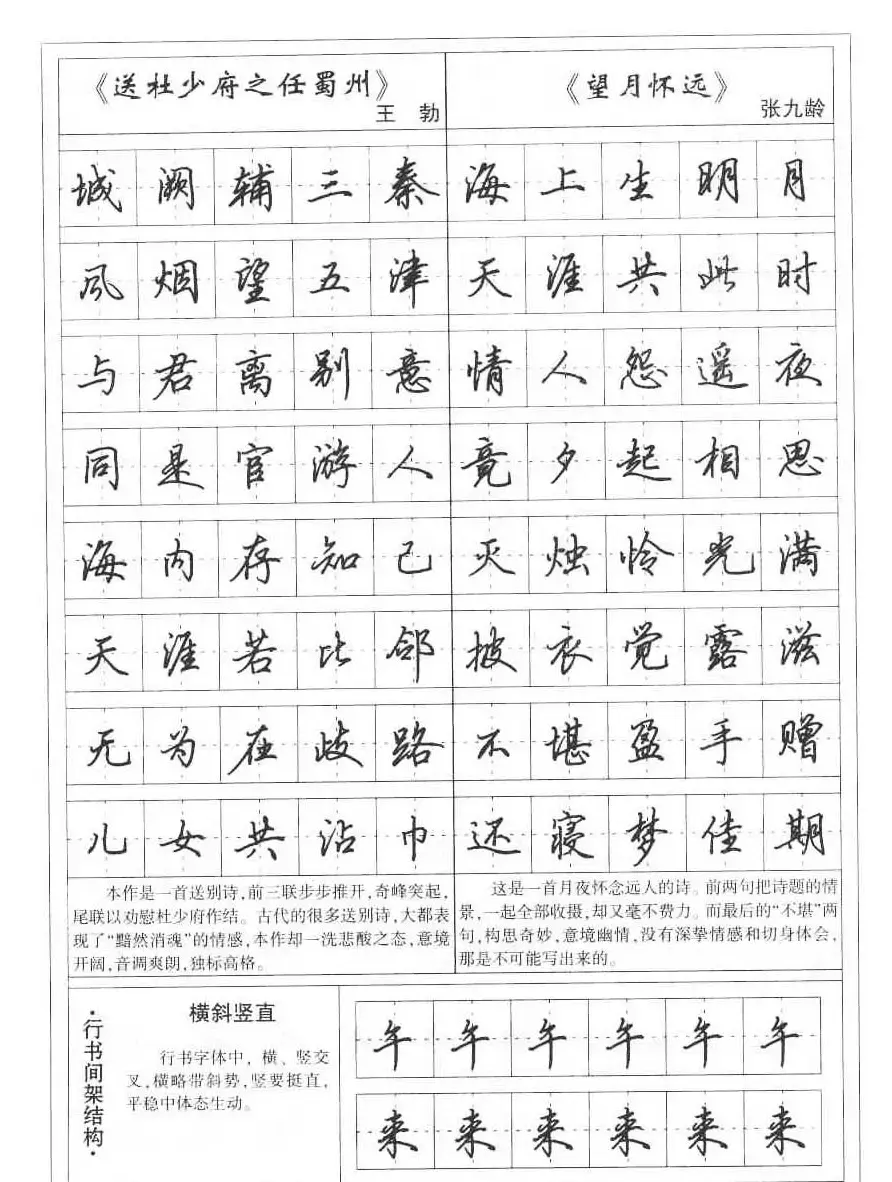 《送杜少府之任蜀州》
王 勃
城阙辅三秦
风烟望五津
与君离别意
同是宦游人
海内存知己
天涯若比邻
无为在歧路
儿女共沾巾
本作是一首送别诗，前三联步步推开，奇峰突起，
尾联以劝慰杜少府作结。古代的很多送别诗，大都表
现了“黯然消魂”的情感，本作却一洗悲酸之态，意境
开阔，音调爽朗，独标高格。
《望月怀远》
张九龄
海上生明月
天涯共此时
情人怨遥夜
竟夕起相思
灭烛怜光满
披衣觉露滋
不堪盈手赠
还寝梦佳期
这是一首月夜怀念远人的诗。前两句把诗题的情
景，一起全部收摄，却又毫不费力。而最后的“不堪”两
句，构思奇妙，意境幽情，没有深挚情感和切身体会，
那是不可能写出来的。
·行书间架结构·
横斜竖直
行书字体中，横、竖交
叉，横略带斜势，竖要挺直，
平稳中体态生动。
午午午午午午
来来来来来来